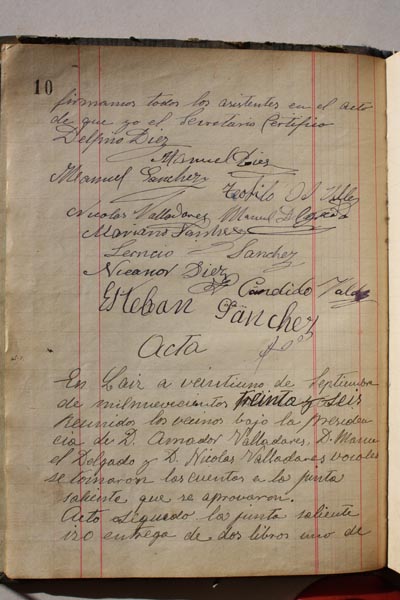 10
firmamos todos los asistentes en el acto
de que yo el Secretario Certifico
Delfino Diez
Manuel Diez
Manuel Sanchez
Teofilo
Nicolas Valladares Manuel
Mariano
Leoncio Sanchez
Nicanor Diez
Candido
Esteban Sánchez
Acta
En Lair a veintiuno de Septiembre
de milnuevecientos treinta y seis
Reunido los vecinos bajo la presiden
cia de D. Amador Valladares, D. Manu
el Delgado y D. Nicolas Valladares vocales
se tomaron las cuentas a la junta
saliente que se aprovaron.
Acto seguado la junta saliente
izo entrega de dos libros uno de